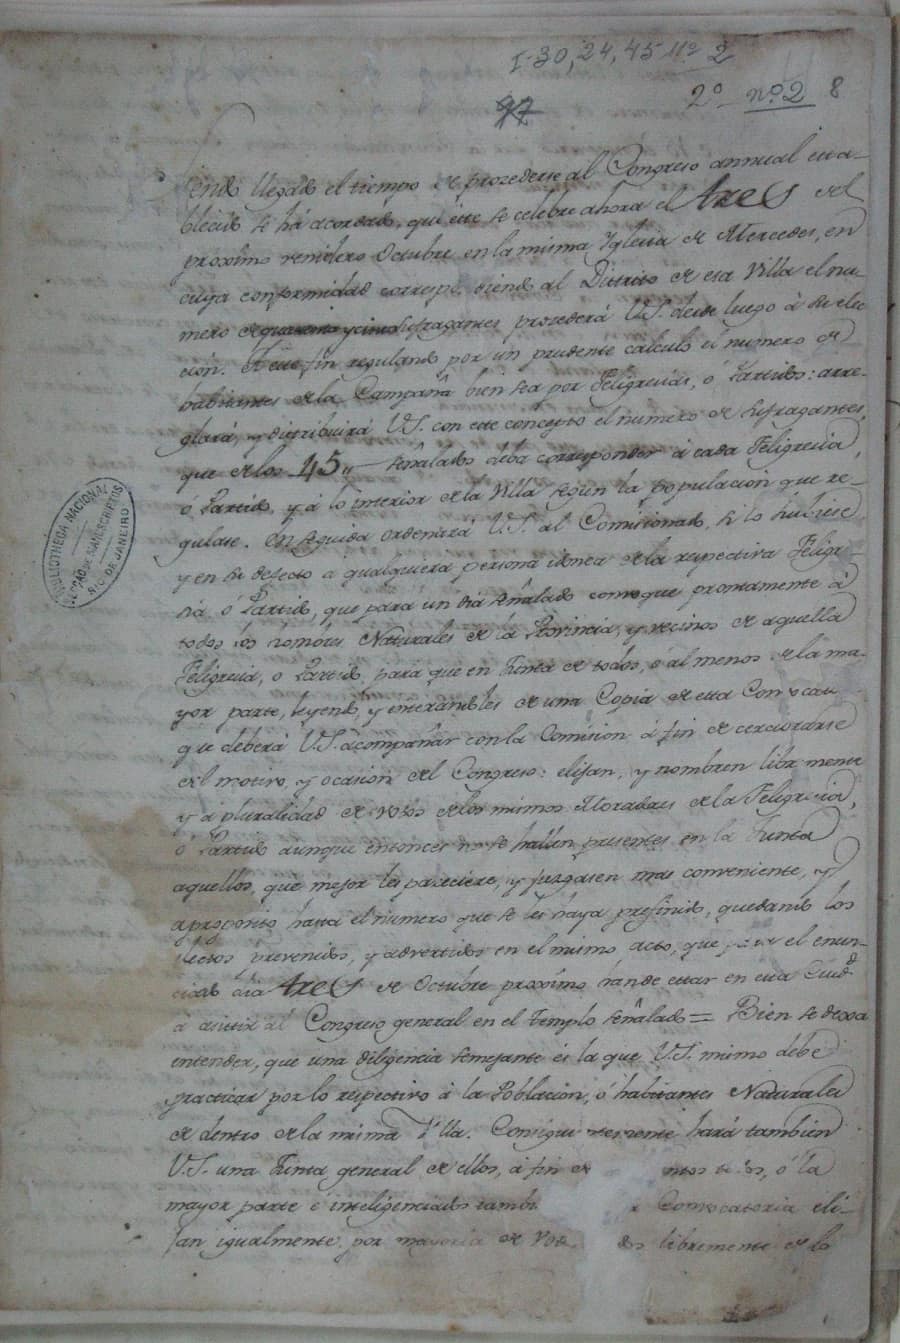 I-30,24,45 Nº 2
2º nº 2 8
97
siendo llegado el tiempo de procederse al Congreso annual esta-
blecido se há acordado, que este se celebre ahora el tres del
proximo venidero Octubre en la misma Yglesia de Mercedes, en
cuya conformidad correspondiendo al Distrito de esa Villa el nu-
mero de quarenta y cinco sufragantes procederá V.S. desde luego à su elec-
ción. A ese fin regulando por un prudente calculo el numero de
habitantes de la Campaña bien sea por Feligresias, ó Partidos: arre-
glará, y distribuirá V.S. con este concepto el numero de sufragantes,
que de los 45,, señalados deba corresponder à cada Feligresia,
ó Partido, y à lo interior de la Villa segun la populacion que re-
gulase. En seguida ordenará V.S. al Comisionado, si lo hubiese
y en su defecto a qualquiera persona idonea de la respectiva Feligre-
sia ó Partido, que para un dia señalado convoque prontamente à
todos los hombres Naturales de la Provincia, y vecinos de aquella
Feligresia, o Partido, para que en Junta de todos, ó al menos de la ma-
yor parte, leyendo, y interandoles de una Copia de esta Convocam
que deberá V.S. acompañar con la Comision à fin de cerciorarse
del motivo, y ocasion del Congreso: elijan, y nombren libremente
y à pluralidad de votos de los mismos Moradores de la Feligresia,
ó Partido aunque entonces no se hallen presentes en la Junta
aquellos, que mejor les pareciere, y juzgasen mas conveniente, y
aproposito hasta el numero que se les haya prefinido, quedando los
electos prevenidos, y advertidos en el mismo acto, que para el enun-
ciado dia tres de Octubre proximo hande estar en esta Ciudd
à asistir al Congreso general en el Templo señalado = Bien se dexa
entender, que una diligencia semejante es la que V.S. mismo debe
practicar por lo respectivo à la Poblacion, ó habitantes Naturales
de dentro de la misma Villa. Consiguientemente hará tambien
V.S. una Junta general de ellos, à fin de ntos todos, ó la
mayor parte é inteligenciados tambi Convocatoria eli-
jan igualmente por mayoria de Vot dos libremente de lo
BIBLIOTHECA NACIONAL
SECÇÃO DE MANUSCRIPTOS
RIO DE JANEIRO